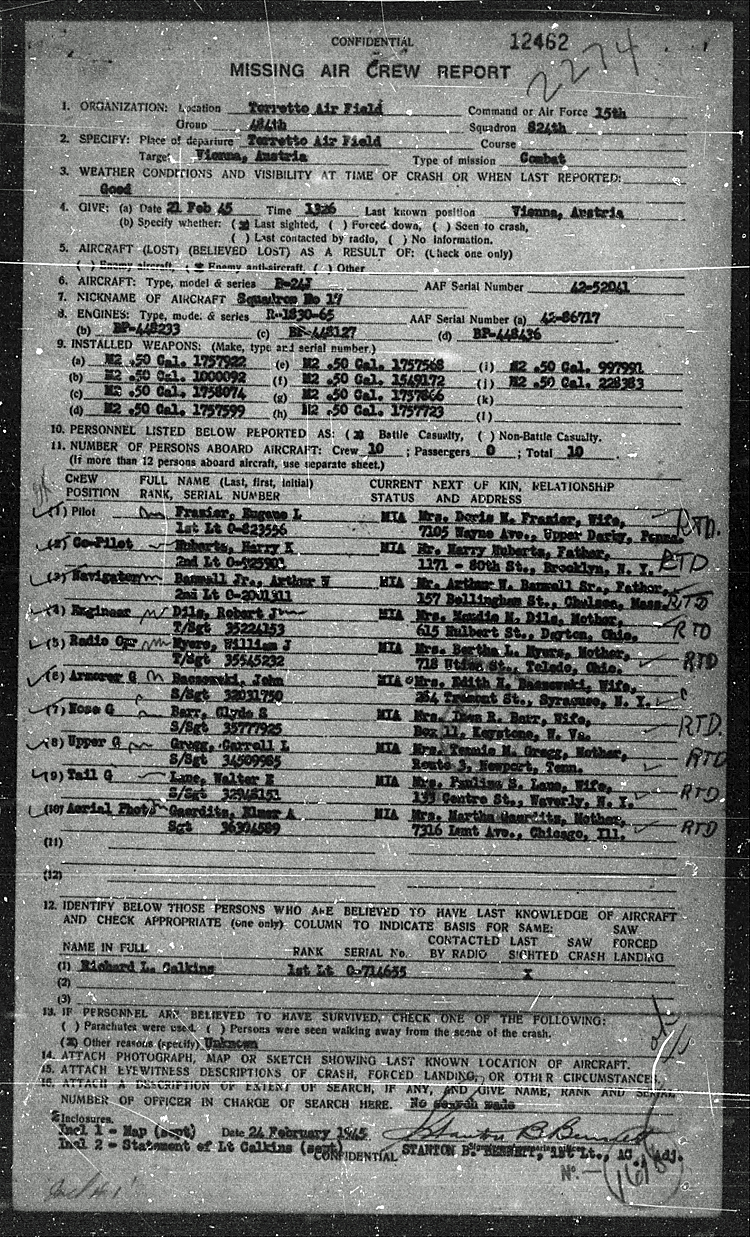 CONFIDENTIAL
12462
2274
MISSING AIR CREW REPORT
1. ORGANIZATION: Location Torretto Air Field Command or Air Force 15th
Group 484th Squadron 824th
2. SPECIFY: Place of departure Torretto Air Field Course
Target Vienna, Austria Type of mission Combat
3. WEATHER CONDITIONS AND VISIBILITY AT TIME OF CRASH OR WHEN LAST REPORTED:
Good
4. GIVE: (a) Date 21 Feb 45 Time 1326 Last known position Vienna, Austria
(b) Specify whether: (X) Last sighted, ( ) Forced down, ( ) Seen to crash,
( ) Last contacted by radio, ( ) No information.
5. AIRCRAFT (LOST) (BELIEVED LOST) AS A RESULT OF: (Check one only)
( ) Enemy aircraft, (X) Enemy anti-aircraft, ( ) Other
6. AIRCRAFT: Type, model & series B-24J AAF Serial Number 42-52041
7. NICKNAME OF AIRCRAFT Squadron No 17
8. ENGINES: Type, model & series R-1830-65 AAF Serial Number (a) 42-86717
(b) BP-448233 (c) BP-448127 (d) BP-448436
9. INSTALLED WEAPONS: (Make, type and serial number.)
(a) M2 .50 Cal. 1757922 (e) M2 .50 Cal. 1757568 (i) M2 .50 Cal. 997991
(b) M2 .50 Cal. 1000092 (f) M2 .50 Cal. 1549172 (j) M2 .50 Cal. 228383
(c) M2 .50 Cal. 1758074 (g) M2 .50 Cal. 1757866 (k)
(d) M2 .50 Cal. 1757599 (h) M2 .50 Cal. 1757723 (l)
10. PERSONNEL LISTED BELOW REPORTED AS: (X) Battle Casualty, ( ) Non-Battle Casualty.
11. NUMBER OF PERSONS ABOARD AIRCRAFT: Crew 10 ; Passengers 0 ; Total 10
(If more than 12 persons aboard aircraft, use separate sheet.)
CREW FULL NAME (Last, first, initial) CURRENT NEXT OF KIN, RELATIONSHIP
POSITION RANK, SERIAL NUMBER STATUS AND ADDRESS
(1) Pilot Frazier, Eugene L MIA Mrs. Doris M. Frazier, Wife,
1st Lt O-823556 7105 Wayne Ave., Upper Darby, Penna. RTD.
(2) Co-Pilot Huberts, Harry K MIA Mr. Harry Huberts, Father,
2nd Lt 1171 - 80th St., Brooklyn, N. Y. RTD
(3) Navigator Arthur W MIA Mr. Arthur W. Sr., Father,
2nd Lt 157 Bellingham St., Chelsea, Mass. RTD
(4) Engineer Dils, Robert J MIA Mrs. Dils, Mother,
T/Sgt 35224153 615 Hulbert St., Dayton, Ohio. RTD
(5) Radio Opr Myers, William J MIA Mrs. Bertha L. Myers, Mother,
T/Sgt 35545232 718 Utica St., Toledo, Ohio. RTD
(6) Armorer G John MIA Mrs. Edith H. Wife,
S/Sgt 32031750 264 Tremont St., Syracuse, N. Y.
(7) Nose G Barr, Clyde S MIA Mrs. R. Barr, Wife,
S/Sgt 35777925 Box 11, Keystone, W. Va. RTD.
(8) Upper G Gregg, Carroll L MIA Mrs. Tennie M. Gregg, Mother,
S/Sgt 34509985 Route 3, Newport, Tenn. RTD
(9) Tail G Lane, Walter E MIA Mrs. Pauline S. Lane, Wife,
S/Sgt 32948151 133 Centre St., Waverly, N. Y. RTD
(10) Aerial Photo Gaerdits, Elmer A MIA Mrs. Martha Gaerdits, Mother,
Sgt 36304589 7316 Ave., Chicago, Ill. RTD
(11)
(12)
12. IDENTIFY BELOW THOSE PERSONS WHO ARE BELIEVED TO HAVE LAST KNOWLEDGE OF AIRCRAFT
AND CHECK APPROPRIATE (one only) COLUMN TO INDICATE BASIS FOR SAME: SAW
CONTACTED LAST SAW FORCED
NAME IN FULL RANK SERIAL No. BY RADIO SIGHTED CRASH LANDING
(1) Richard L. Calkins 1st Lt O-714655 X
(2)
(3)
13. IF PERSONNEL ARE BELIEVED TO HAVE SURVIVED, CHECK ONE OF THE FOLLOWING:
( ) Parachutes were used ( ) Persons were seen walking away from the scene of the crash.
(X) Other reasons (specify) Unknown
14. ATTACH PHOTOGRAPH, MAP OR SKETCH SHOWING LAST KNOWN LOCATION OF AIRCRAFT.
15. ATTACH EYEWITNESS DESCRIPTIONS OF CRASH, FORCED LANDING, OR OTHER CIRCUMSTANCES.
16. ATTACH A DESCRIPTION OF EXTENT OF SEARCH, IF ANY, AND GIVE NAME, RANK AND SERIAL
NUMBER OF OFFICER IN CHARGE OF SEARCH HERE. No search made
2 Inclosures.
Incl 1 - Map (sent) Date 24 February 1945 Stanton B. Bennett
Incl 2 - Statement of Lt Calkins (sent) STANTON B. BENNETT, 1st Lt., AC Adj.
CONFIDENTIAL